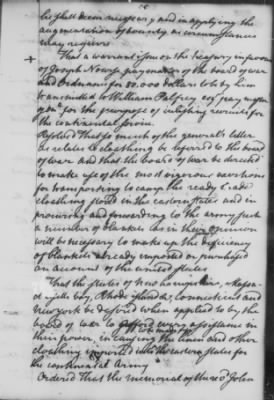 he shall deem necessary and in applying the
augmentation of bounty as circumstances
may require
That a warrant issue on the treasury in favour
of Joseph Nourse paymaster of the board of war
and Ordnance for 50.000 dollars to be by him
transmitted to William Palfrey esqr paymaster
genl for the purpose of enlisting recruits for
the continental service
Resolved That so much of the general's letter
as relates to cloathing be referred to the board
of war and that the board of war be directed
to make use of the most vigorous exertions
for transporting to camp the ready made
cloathing stored in the eastern states and in
procuring and forwarding to the army such
a number of blankets as in their opinion
will be necessary to make up the deficiency
of blankets already imported or purchased
on account of the united states
That the states of New hampshire, Massa-
chusetts bay, Rhode island, Connecticut and
New york be desired when applied to by the
board of war to afford every assistance in
their power, in causing the linen and other
cloathing imported into the eastern states for
the continental Army
Ordered That the memorial of John